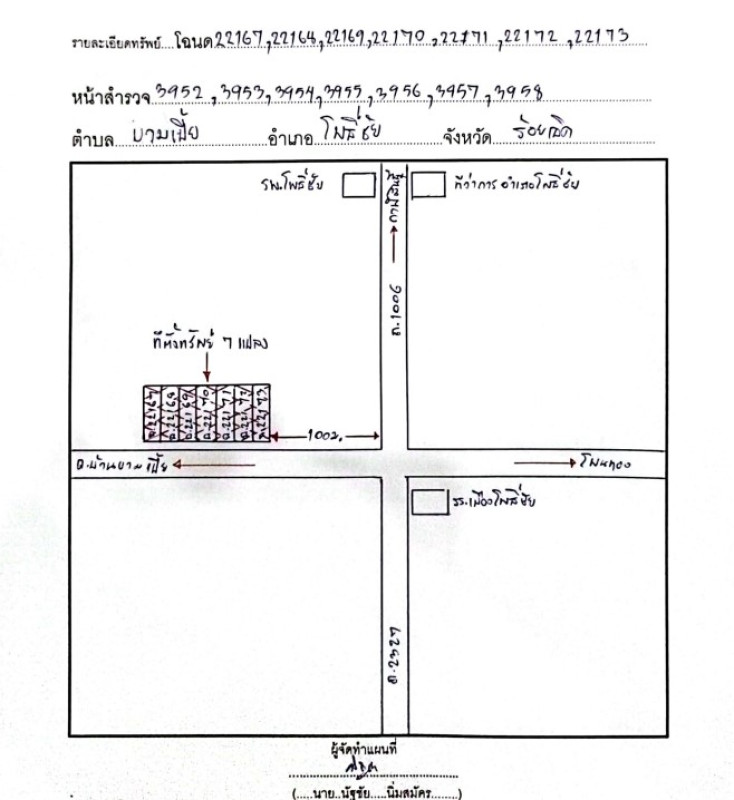 รายละเอียดทรัพย์ โฉนด 22167, 22164, 22169, 22170, 22171, 22172, 22173
หน้าสำรวจ 3952, 3953, 3954, 3955, 3956, 3957, 3958
ตำบล ขามเปี้ย อำเภอ โพธิ์ชัย จังหวัด ร้อยเอ็ด
รพ.โพธิ์ชัย
ที่ว่าการอำเภอโพธิ์ชัย
ถ.1006
ที่ตั้งทรัพย์ 7 แปลง
ฉ.22167
ฉ.22168
ฉ.22169
ฉ.22170
ฉ.22171
ฉ.22172
ฉ.22173
100ม.
บ้านขามเปี้ย
โพนทอง
รร.เมืองโพธิ์ชัย
ถ.2327
ผู้จัดทำแผนที่
(....นาย..นัฐชัย....นิ่มสมัคร.......)